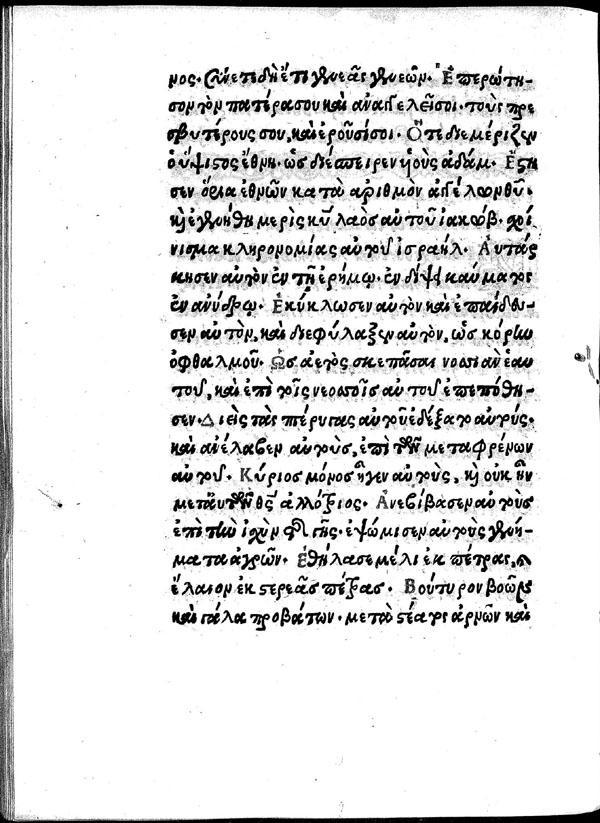 νος. Σύνετε δὴ ἔτι γενεᾶς γενεῶν. Ἐπερώτη-
σον τὸν πατέρα σου καὶ ἀναγγελεῖ σοι. τοὺς πρε
σβυτέρους σου, καὶ ἐροῦσί σοι. Ὅτε διεμέριζεν
ὁ ὕψιστος ἔθνη. ὡς διέσπειρεν υἱοὺς ἀδάμ. Ἔστη
σεν ὅρια ἐθνῶν κατὰ ἀριθμὸν ἀγγέλων θῦ.
καὶ ἐγενήθη μερὶς κῦ λαὸς αὐτοῦ ἰακώβ. σχοί
νισμα κληρονομίας αὐτοῦ ἰσραήλ. Αὐτάρ
κησεν αὐτὸν ἐν τῇ ἐρήμῳ. ἐν δίψει καύματος
ἐν ἀνύδρῳ. Ἐκύκλωσεν αὐτὸν καὶ ἐπαίδευ-
σεν αὐτὸν, καὶ διεφύλαξεν αὐτὸν, ὡς κόρην
ὀφθαλμοῦ. Ὡς ἀετὸς σκεπάσαι νοσσιὰν ἑαυ
τοῦ, καὶ ἐπὶ τοῖς νεοσσοῖς αὐτοῦ ἐπεπόθη-
σεν. Διεὶς τὰς πτέρυγας αὐτοῦ ἐδέξατο αὐτούς.
καὶ ἀνέλαβεν αὐτοὺς, ἐπὶ τῶν μεταφρένων
αὐτοῦ. Κύριος μόνος ἦγεν αὐτοὺς, καὶ οὐκ ἦν
μετ' αὐτῶν θς ἀλλότριος. Ἀνεβίβασεν αὐτοὺς
ἐπὶ τὴν ἰσχὺν τῆς γῆς. ἐψώμισεν αὐτοὺς γενή-
ματα ἀγρῶν. Ἐθήλασε μέλι ἐκ πέτρας, καὶ
ἔλαιον ἐκ στερεᾶς πέτρας. Βούτυρον βοῶν
καὶ γάλα προβάτων. μετὰ στέατος ἀρνῶν καὶ